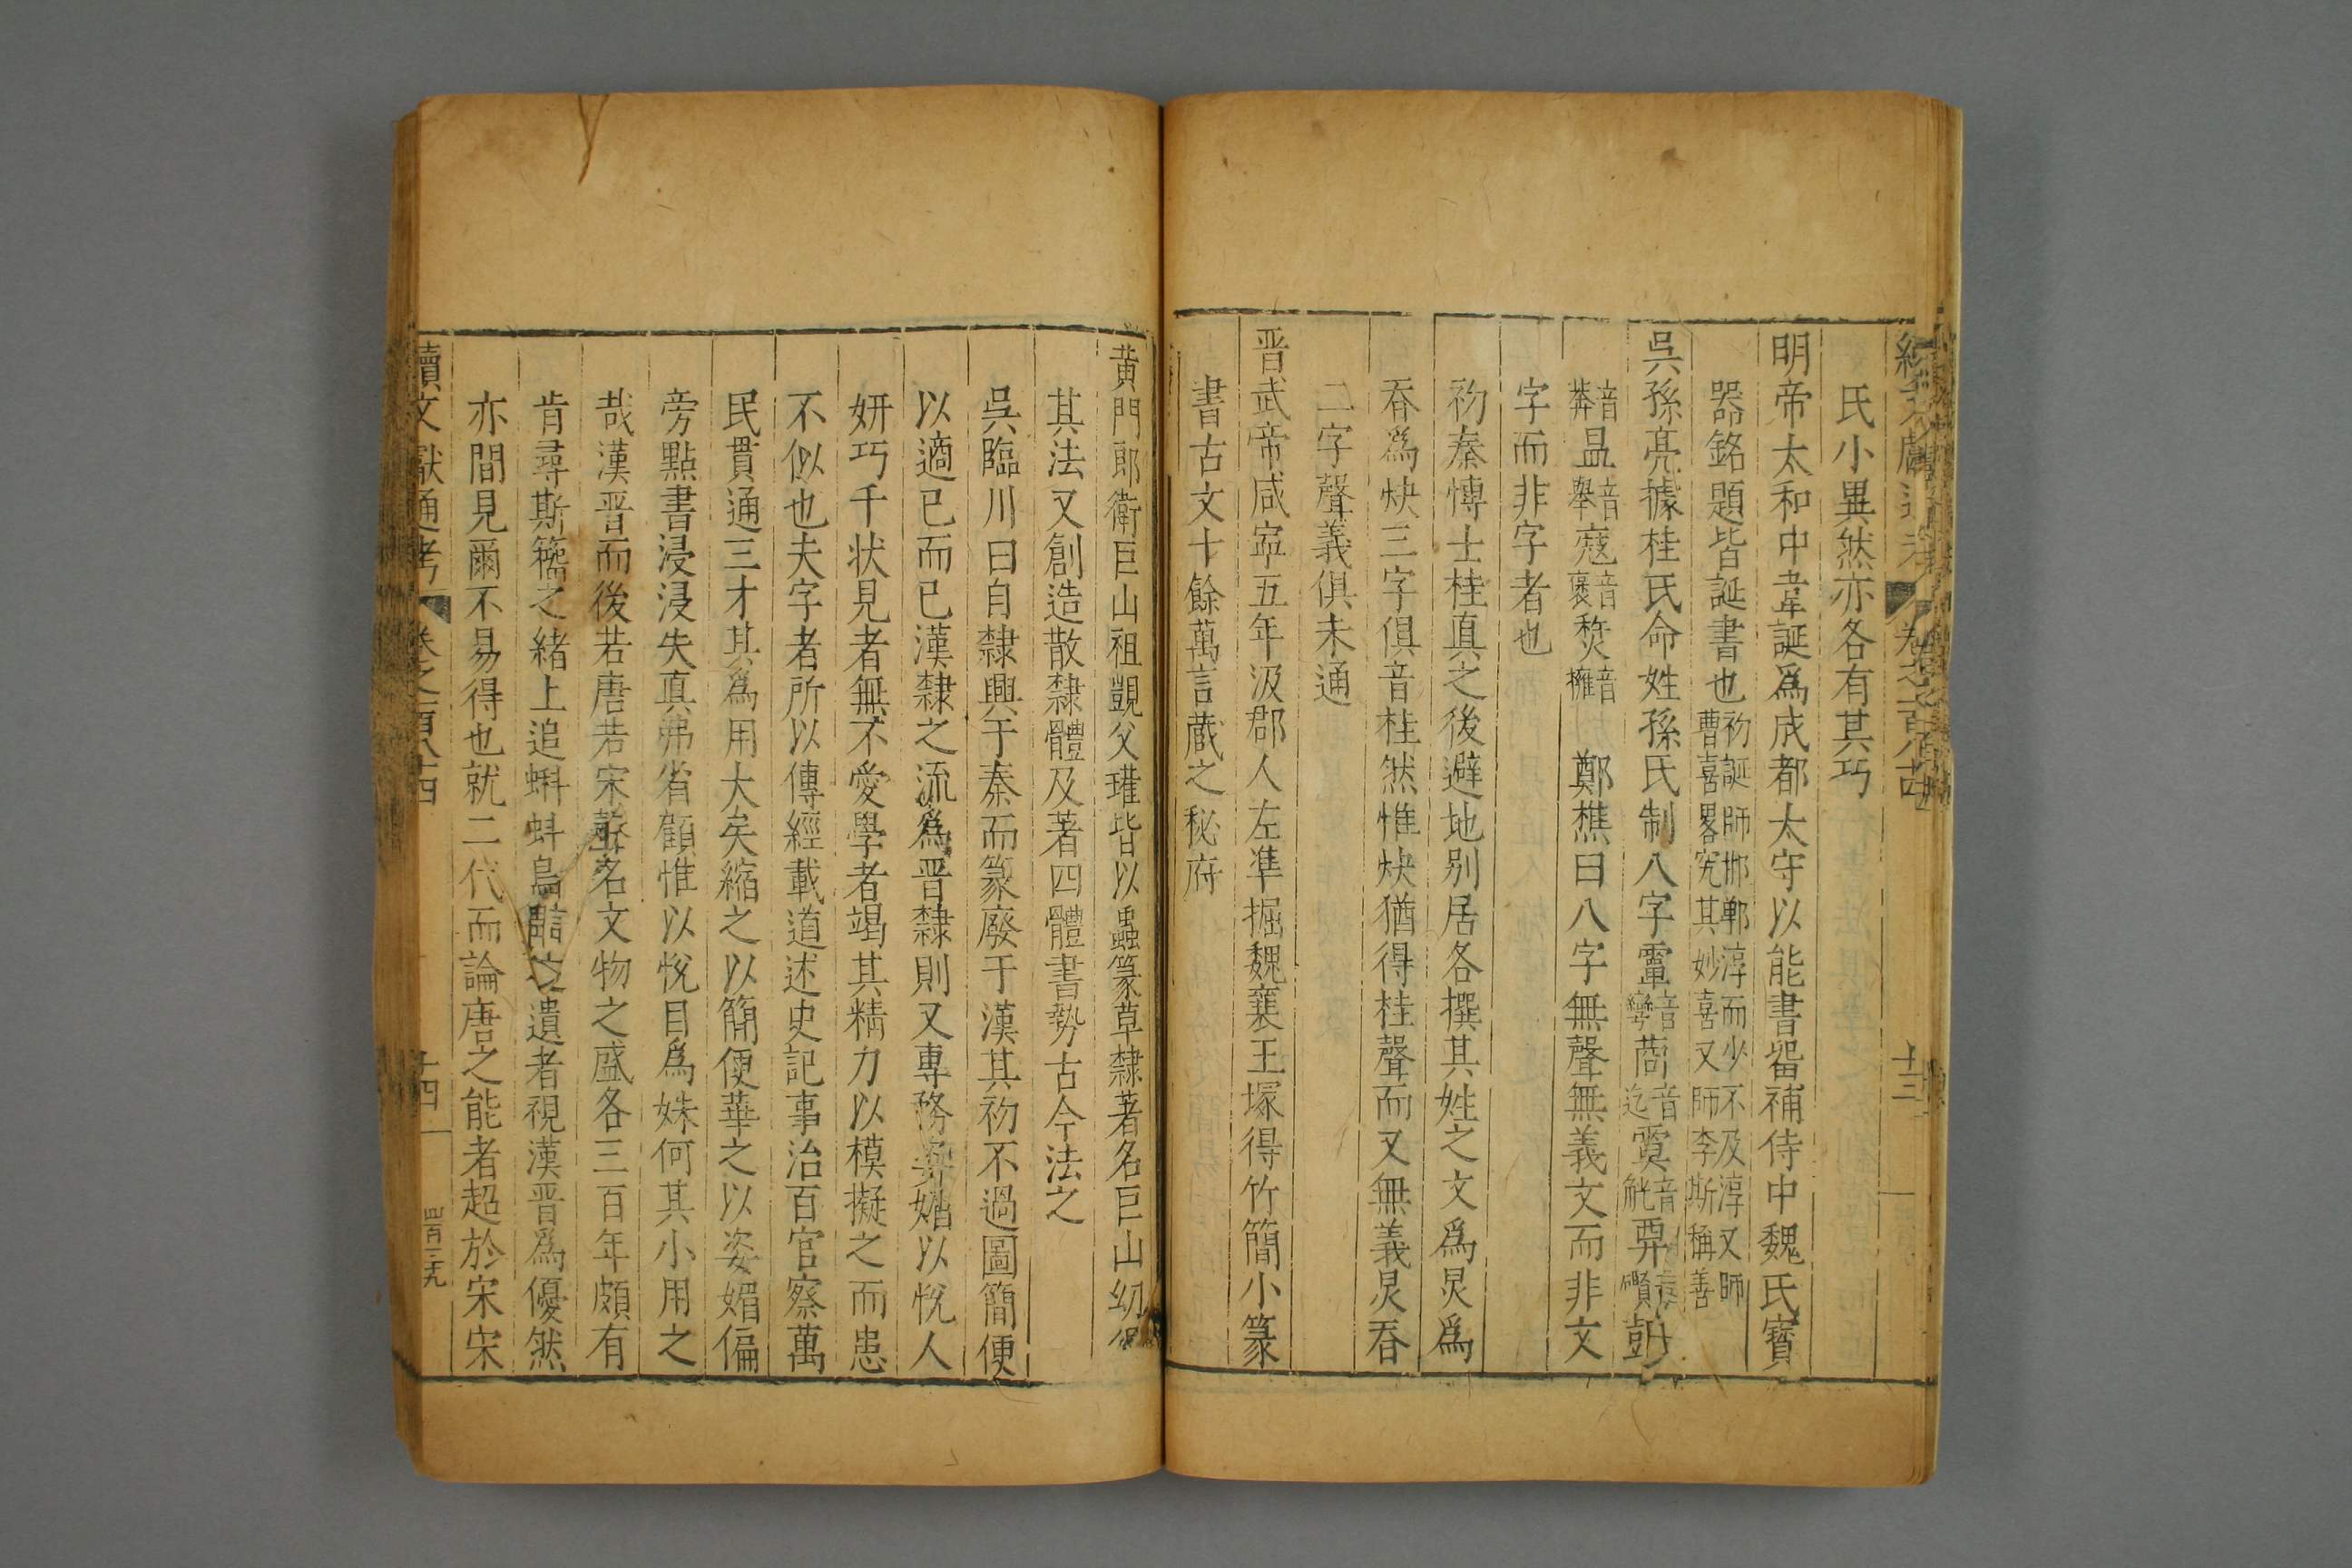 續文獻通考 卷之一百八十四 十三
氏小異然亦各有其巧
明帝太和中韋誕爲成都太守以能書留補侍中魏氏寳
器銘題皆誕書也初誕師邯鄲淳而少不及淳又師
曹喜畧究其妙喜又師李斯稱善
吳孫亮據桂氏命姓孫氏制八字𩅦音彎音迄音觥音礥
音莽昷音舉寇音褒㷅音擁 鄭樵曰八字無聲無義文而非文
字而非字者也
初秦愽士桂真之後避地别居各撰其姓之文爲炅爲
吞爲炔三字俱音桂然惟炔猶得桂聲而又無義炅吞
二字聲義俱未通
晋武帝咸寧五年汲郡人左準掘魏襄王塚得竹簡小篆
書古文十餘萬言蔵之秘府
黄門郎衛巨山祖覬父瓘皆以蟲篆草隸著名巨山幼
其法又創造散隸體及著四體書勢古今法之
吳臨川曰自隸興于秦而篆廢于漢其初不過圖簡便
以適已而已漢隸之流爲晋隸則又專務以悅人
妍巧千状見者無不愛學者竭其精力以模擬之而患
不似也夫字者所以傳經載道述史記事治百官察萬
民貫通三才其爲用大矣縮之以簡便華之以姿媚偏
旁點畫浸浸失真弗省顧惟以悅目爲姝何其小用之
哉漢晋而後若唐若宋聲名文物之盛各三百年頗有
肯尋斯籀之緒上追蝌蚪鳥跡之遺者視漢晋爲優然
亦間見爾不易得也就二代而論唐之能者超於宋宋
續文獻通考 卷之一百八十四 十四